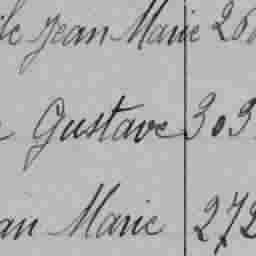 Jean Marie 26
Gustave 303
an Marie 272